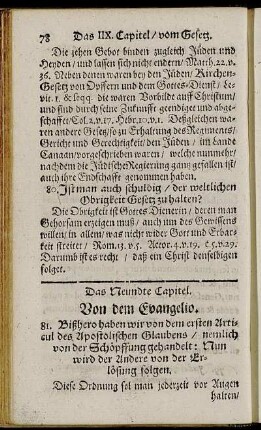 78 Das IIX. Capitel / vom Gesetz.
Die zehen Gebot binden zugleich Jüden und
Heyden / und lassen sich nicht endern / Matth. 22. v.
36. Neben denen waren bey den Jüden / Kirchen-
Gesetz von Opffern und dem Gottes-Dienst / Le-
vit. 1. & seqq. die waren Vorbilde auff Christum /
und sind durch seine Zukunfft geendiget und abge-
schaffet / Col. 2. v. 17. Hebr. 10. v. 1. Deßgleichen wa-
ren andere Gesetz / zu Erhaltung des Regiments /
Gericht und Gerechtigkeit / den Jüden / im Lande
Canaan / vorgeschrieben waren / welche nunmehr /
nachdem die Jüdische Regierung gantz gefallen ist /
auch ihre Endschafft genommen haben.
80. Ist man auch schuldig / der weltlichen
Obrigkeit Gesetz zu halten?
Die Obrigkeit ist Gottes Dienerin / deren man
Gehorsam erzeigen muß / auch um des Gewissens
willen / in allem / was nicht wider Gott und Erbar-
keit streitet / Rom. 13. v. 5. Actor. 4. v. 19. c. 5. v. 29.
Darum ist es recht / daß ein Christ denselbigen
folget.
Das Neundte Capitel.
Von dem Evangelio.
81. Bißhero haben wir von dem ersten Arti-
cul des Apostolischen Glaubens / nemlich
von der Schöpffung gehandelt: Nun
wird der Andere von der Er-
lösung folgen.
Diese Ordnung sol man jederzeit vor Augen
halten /